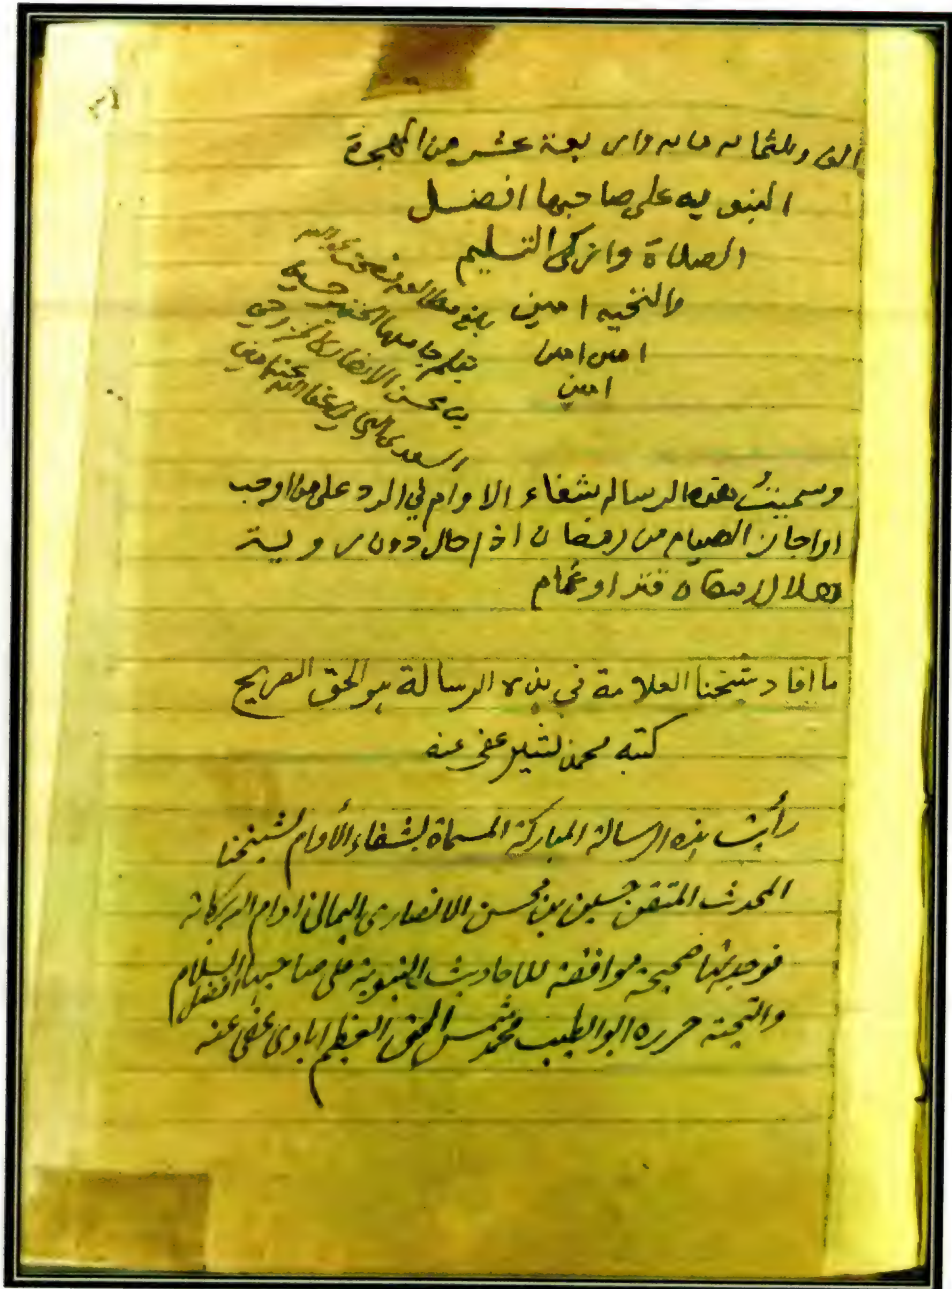 الف وثلثمايه مايه واربعة عشر من الهجرة
النبويه على صاحبها افضل
الصلاة وازكى التسليم
والتحيه امين
امين امين
امين
بلغ مطالعه
بقلم جامعها الحقير حسين
بن محسن الانصاري الخزرجي
السعدي اليماني عفا الله عنه امين
وسميت هذه الرساله بشفاء الاوام في الرد على من اوجب
او اجاز الصيام من رمضان اذا حال دون روية
هلال رمضان قتر او غمام
ما افاد شيخنا العلامة في هذه الرسالة هو الحق الصريح
كتبه محمد بشير عفى عنه
رأيت هذه الرسالة المباركة المسماة بشفاء الأوام لشيخنا
المحدث المتقن حسين بن محسن الانصارى اليمانى ادام الله بركاته
فوجدتها صحيحة موافقة للاحاديث النبوية على صاحبها افضل السلام
والتحية حرره ابو الطيب محمد شمس الحق العظيم ابادى عفى عنه